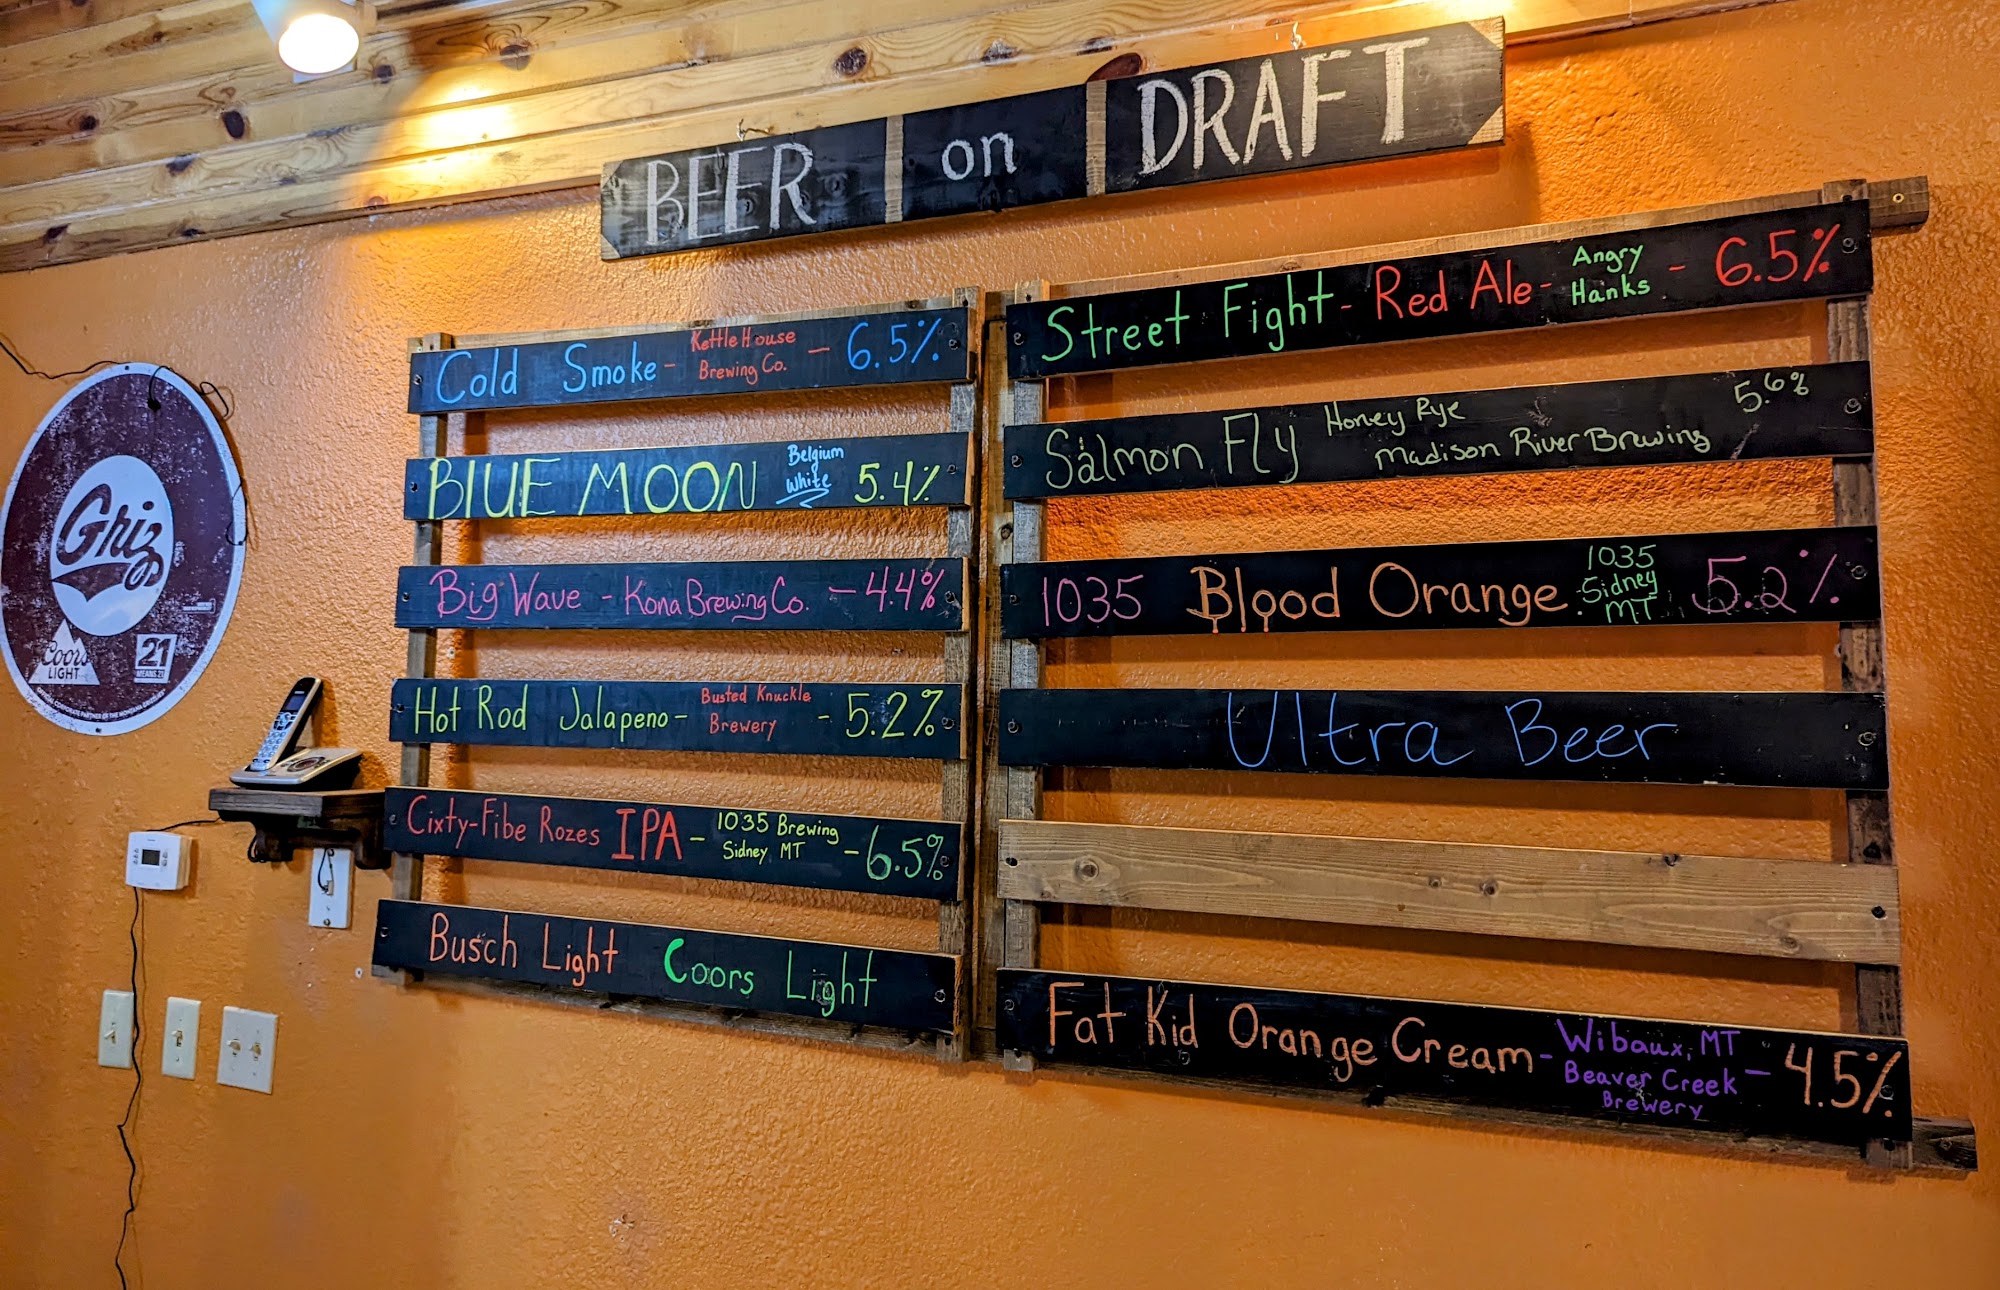 BEER on DRAFT
Cold Smoke - KettleHouse Brewing Co. - 6.5%
BLUE MOON Belgium White 5.4%
Big Wave - Kona Brewing Co. - 4.4%
Hot Rod Jalapeno - Busted Knuckle Brewery - 5.2%
Cixty-Fibe Rozes IPA - 1035 Brewing Sidney MT - 6.5%
Busch Light Coors Light
Street Fight - Red Ale - Angry Hanks - 6.5%
Salmon Fly Honey Rye Madison River Brewing 5.6%
1035 Blood Orange 1035 Sidney MT 5.2%
Ultra Beer
Fat Kid Orange Cream - Wibaux, MT Beaver Creek Brewery - 4.5%
Griz
Coors
LIGHT
21
MEANS 21